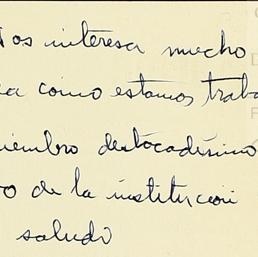 Nos interesa mucho
ca como estamos traba
iembro destocadísimo
o de la institución
saludo